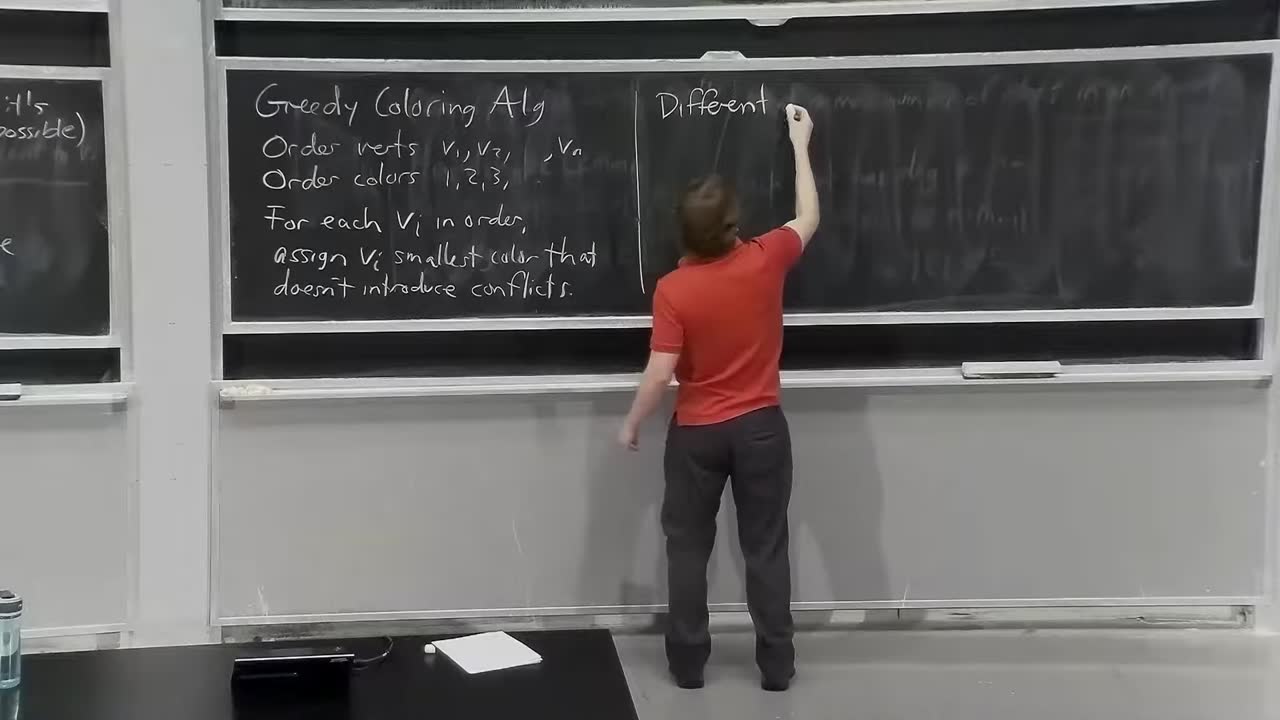 it's
possible)
Greedy Coloring Alg
Order verts v₁, v₂, , vₙ
Order colors 1, 2, 3,
For each vᵢ in order,
assign vᵢ smallest color that
doesn't introduce conflicts.
Different